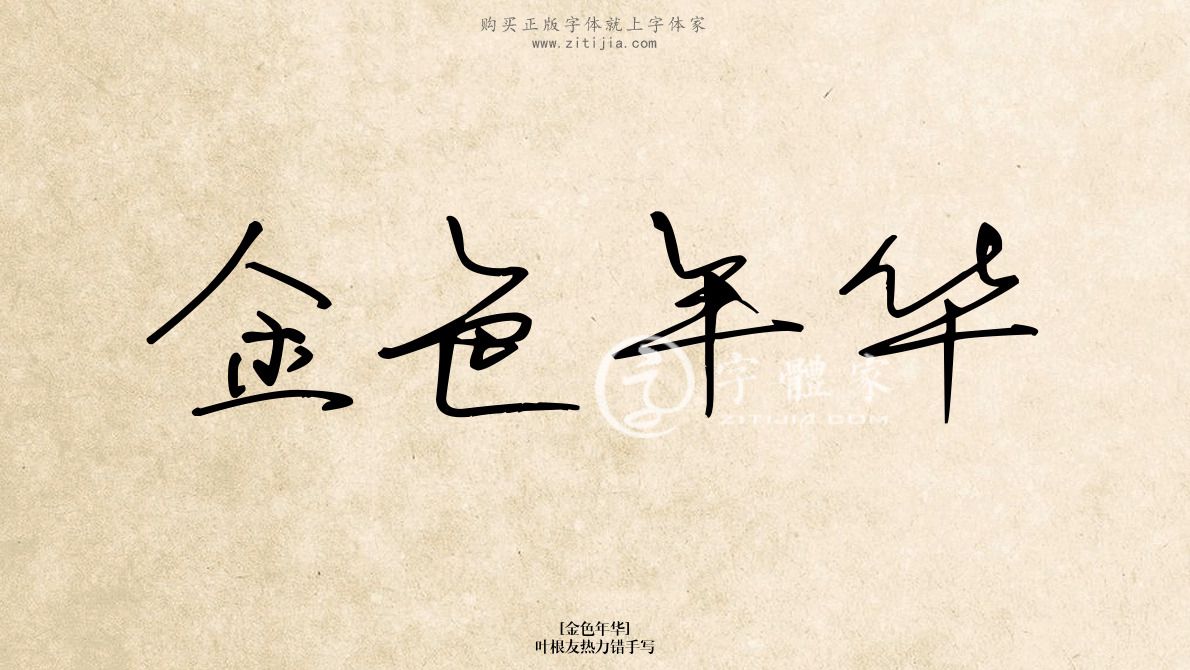 购买正版字体就上字体家
www.zitijia.com
金色年华
字體家
ZITIJIA.COM
[金色年华]
叶根友热力错手写